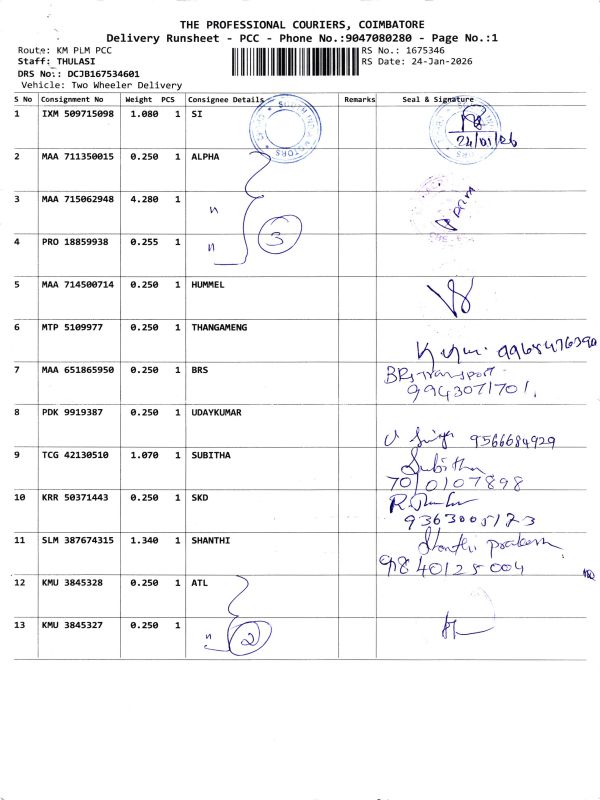 THE PROFESSIONAL COURIERS, COIMBATORE
Delivery Runsheet - PCC - Phone No.:9047080280 - Page No.:1
Route: KM PLM PCC RS No.: 1675346
Staff: THULASI RS Date: 24-Jan-2026
DRS No.: DCJB167534601
Vehicle: Two Wheeler Delivery
S No Consignment No Weight PCS Consignee Details Remarks Seal & Signature
1 IXM 509715098 1.080 1 SI
24/01/26
2 MAA 711350015 0.250 1 ALPHA
3 MAA 715062948 4.280 1 "
4 PRO 18859938 0.255 1 " 3
5 MAA 714500714 0.250 1 HUMMEL
6 MTP 5109977 0.250 1 THANGAMENG
9968476390
7 MAA 651865950 0.250 1 BRS BRS Transport
9943071701.
8 PDK 9919387 0.250 1 UDAYKUMAR
9566684929
9 TCG 42130510 1.070 1 SUBITHA Subitha
7010107898
10 KRR 50371443 0.250 1 SKD
9363005173
11 SLM 387674315 1.340 1 SHANTHI Shanthi prakash
9840125004
12 KMU 3845328 0.250 1 ATL
13 KMU 3845327 0.250 1 " 2